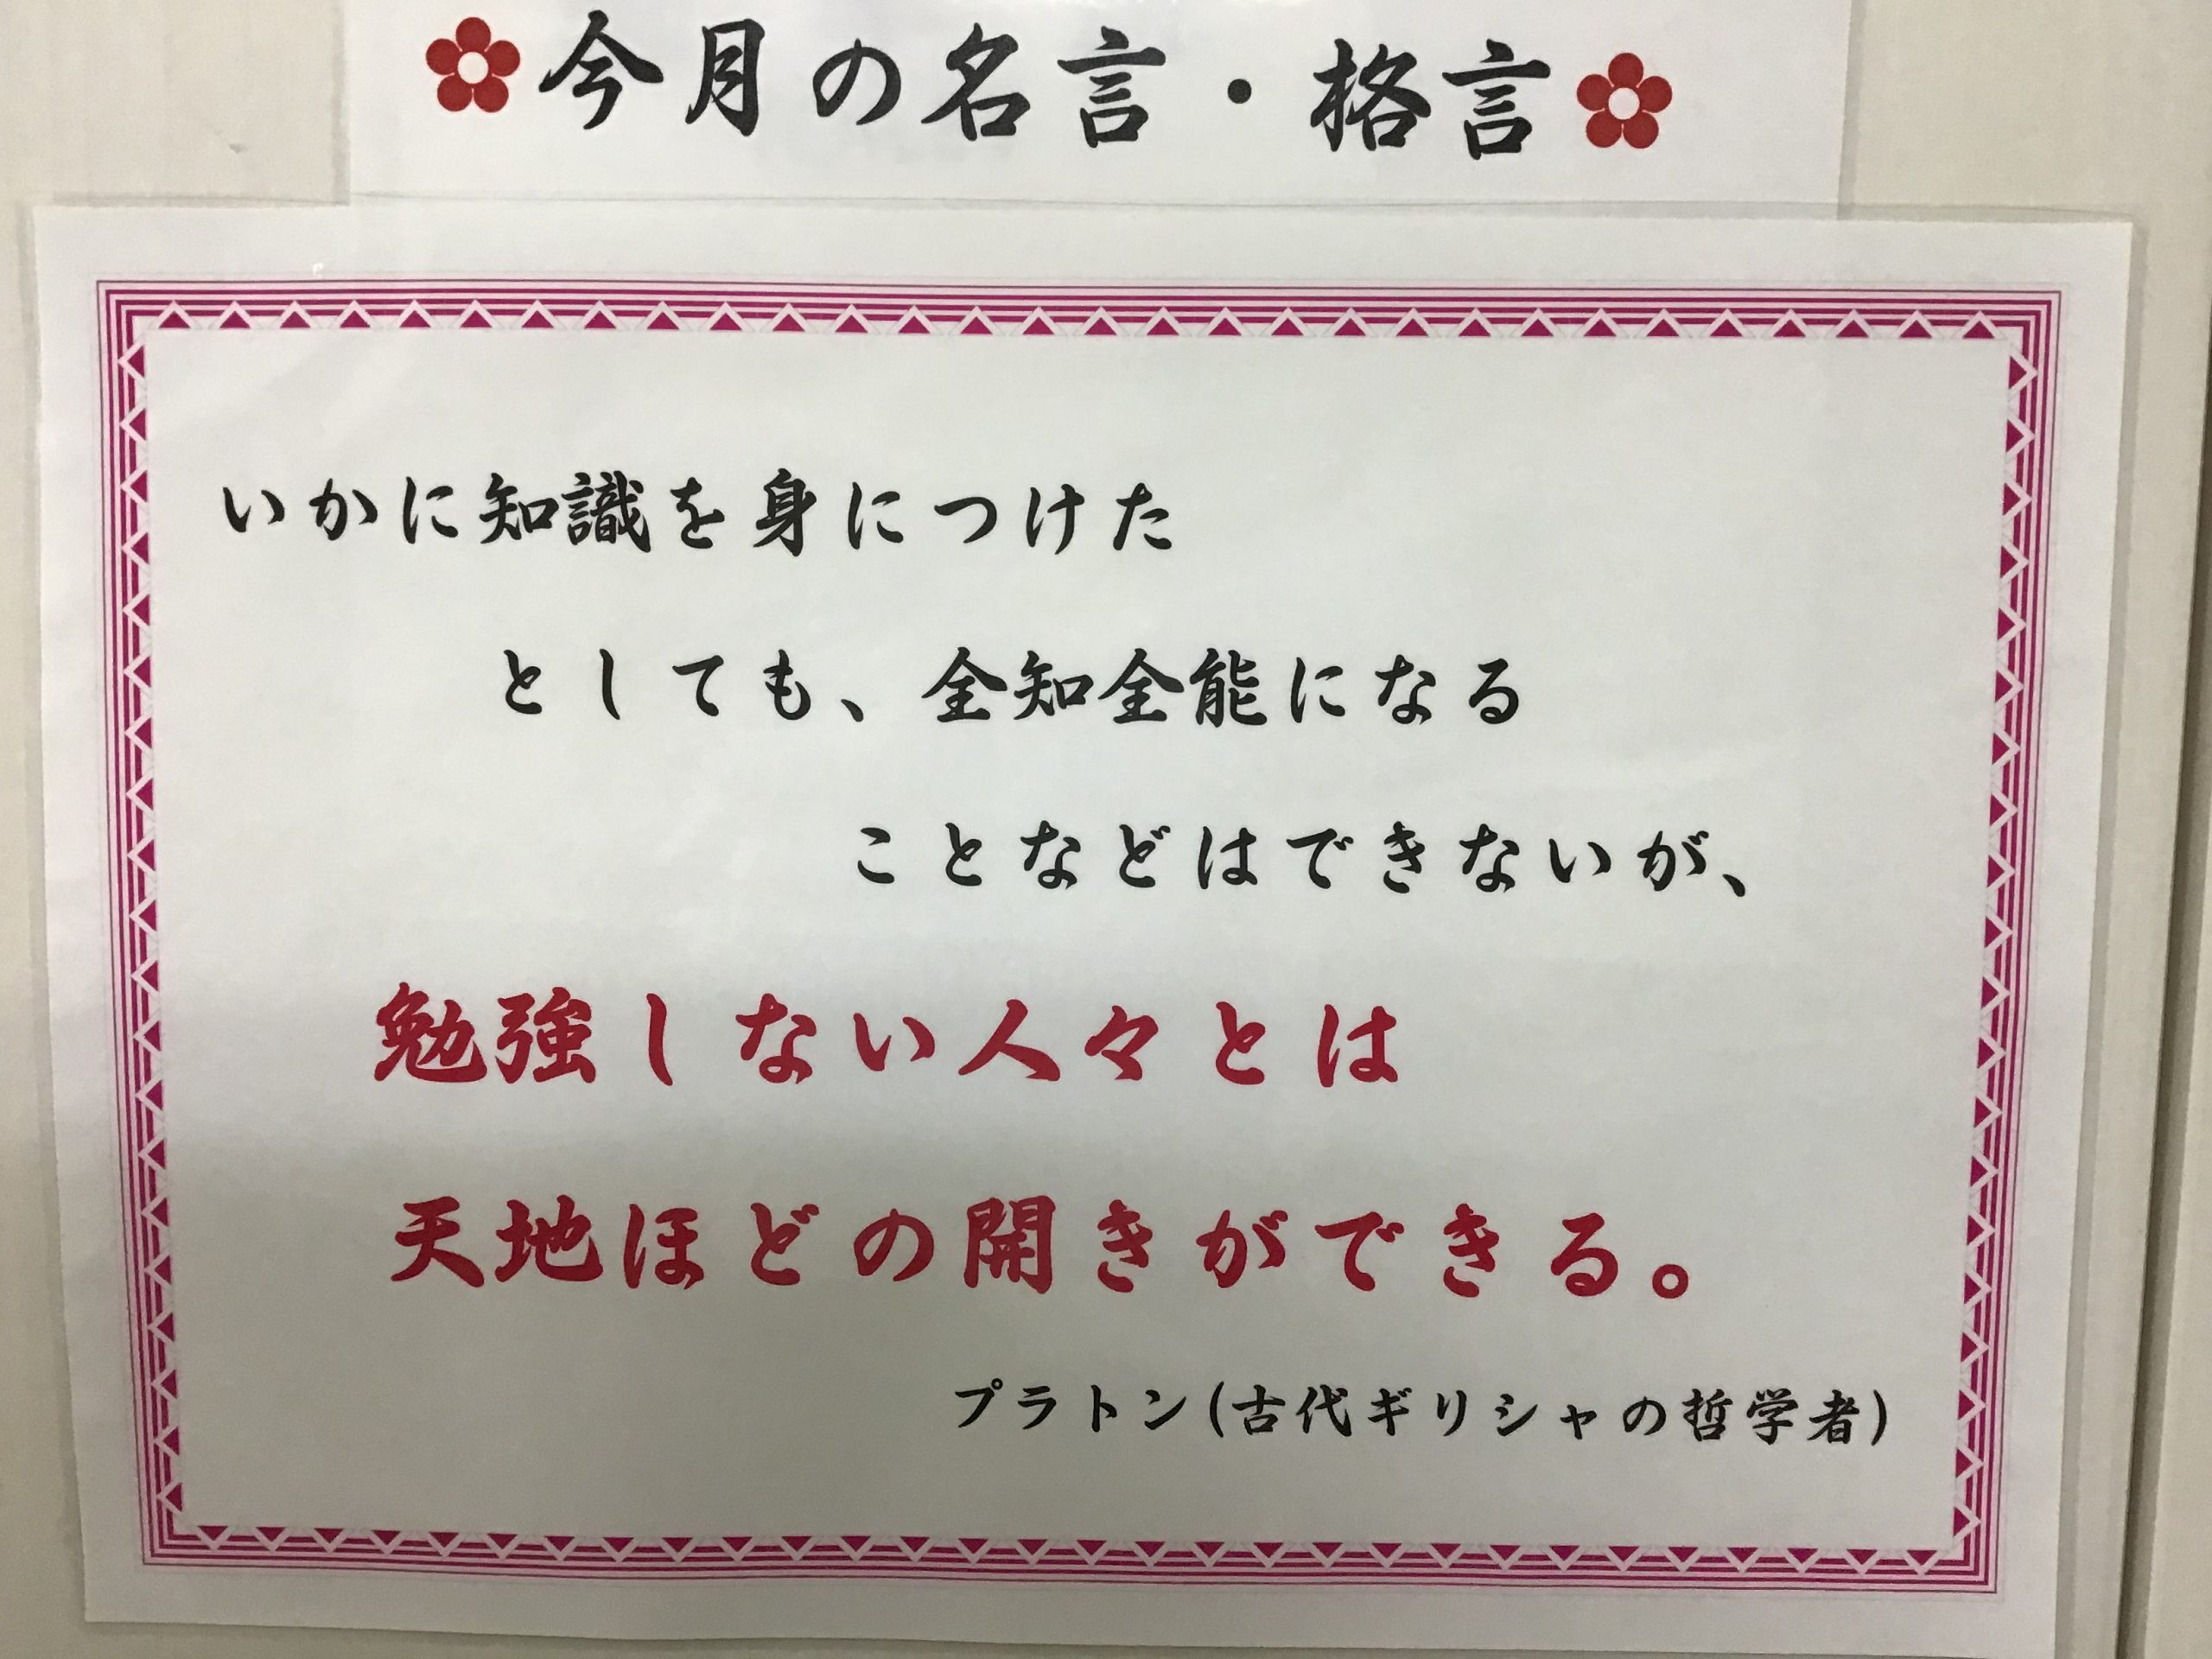 今月の名言・格言
いかに知識を身につけた
としても、全知全能になる
ことなどはできないが、
勉強しない人々とは
天地ほどの開きができる。
プラトン(古代ギリシャの哲学者)